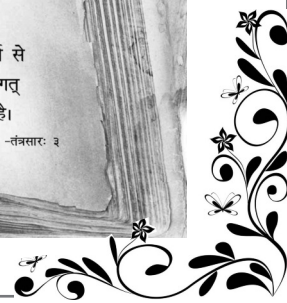 से
है।
–तंत्रसारः ३